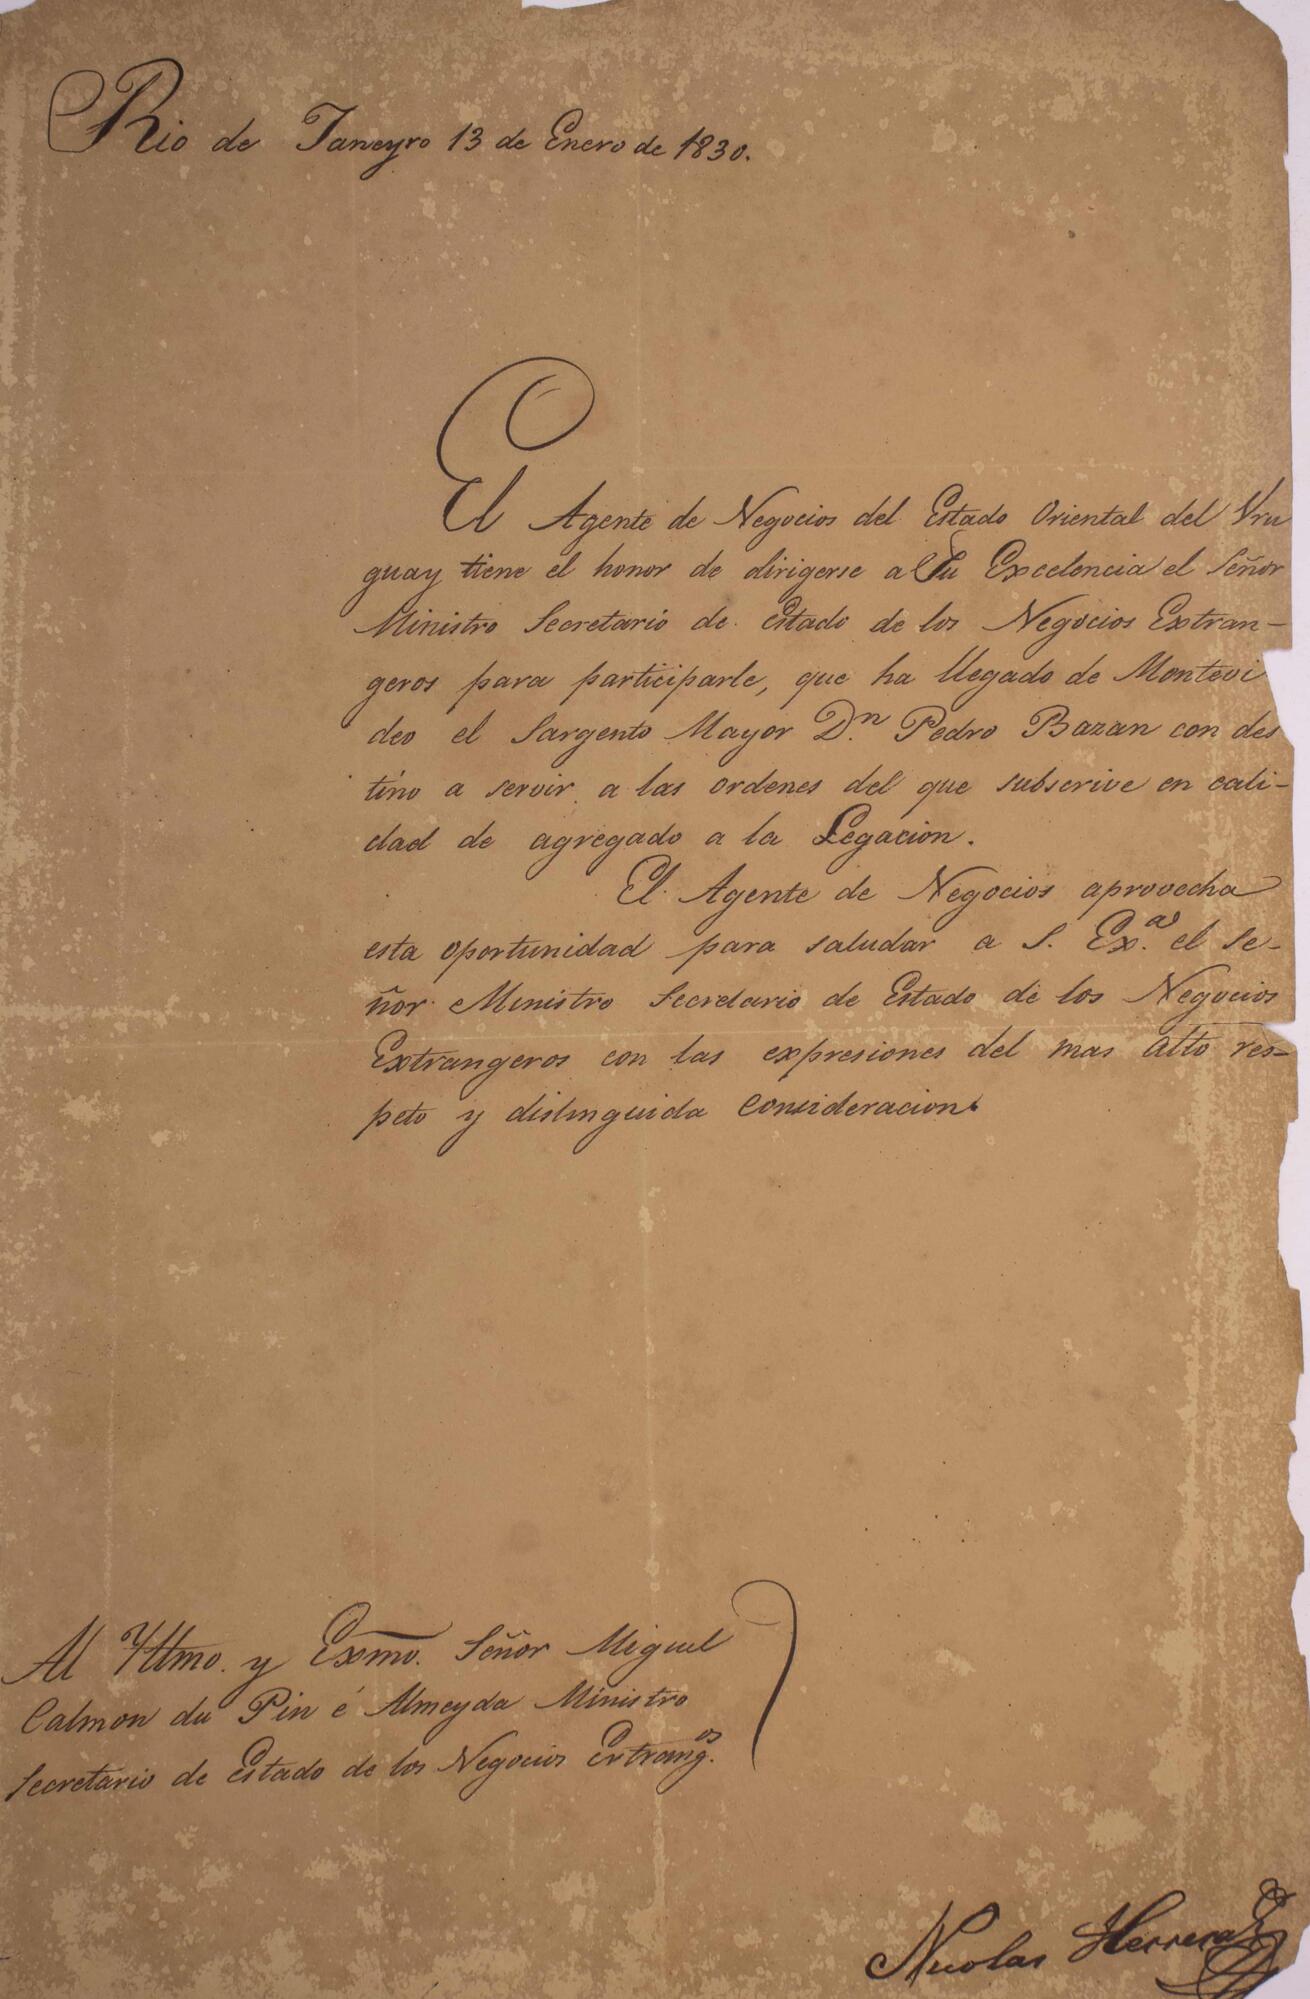 Rio de Janeyro 13 de Enero de 1830.
El Agente de Negocios del Estado Oriental del Vru
guay tiene el honor de dirigerse a Su Excelencia el Señor
Ministro Secretario de Estado de los Negocios Extran-
geros para participarle, que ha llegado de Montevi
deo el Sargento Mayor D.n Pedro Bazan con des
tino a servir a las ordenes del que subscrive en cali-
dad de agregado a la Legacion.
El Agente de Negocios aprovecha
esta oportunidad para saludar a S. Ex.a el Se-
ñor Ministro Secretario de Estado de los Negocios
Extrangeros con las expresiones del mas alto res-
peto y distinguida consideracion.
Al Yllmo. y Exmo. Señor Miguel
Calmon du Pin é Almeyda Ministro
Secretario de Estado de los Negocios Extrang.os
Nicolas Herrera